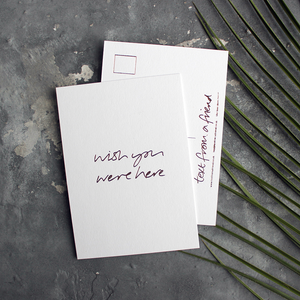 wish you
were here
text from a friend